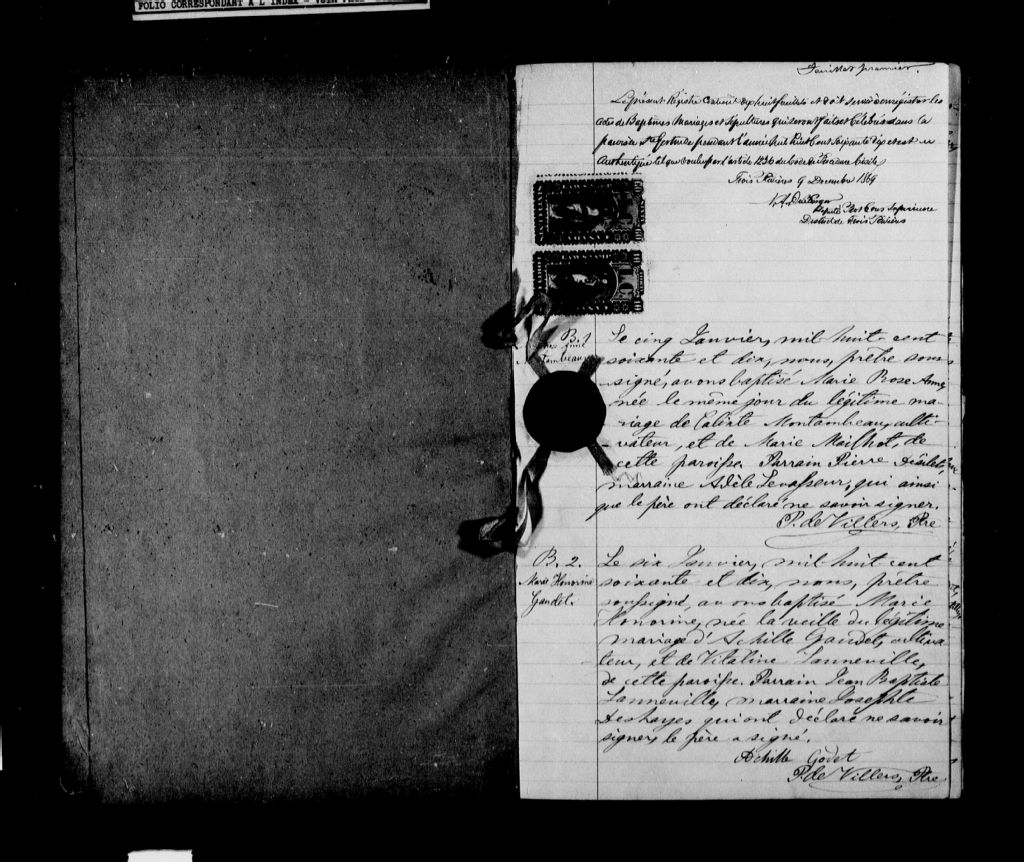 FOLIO CORRESPONDANT A L'INDEX - VOIR
Feuillet premier.
Le présent Registre contient dix huit feuillets et doit servir à enregistrer les
actes de Baptêmes Mariages et Sépultures qui seront faits et célébrés dans la
paroisse Ste Gertrude pendant l'année mil huit cent soixante dix et est
authentiqué tel que voulu par l'article 1236 du Code de Procédure Civile
Trois Rivières 9 Decembre 1869
Député Cour Supérieure
District de Trois Rivières
B. 1
Le cinq Janvier, mil huit cent
soixante et dix, nous, prêtre sous
signé, avons baptisé Marie Rose Anne
née le même jour du légitime ma-
riage de Calixte Montambeau, culti-
vateur, et de Marie Mailhot, de
cette paroisse. Parrain Pierre Désilets,
marraine Adèle Levasseur, qui ainsi
que le père ont déclaré ne savoir signer.
P. de Villers, Ptre
B. 2.
Marie Honorine
Gaudet.
Le six Janvier, mil huit cent
soixante et dix, nous, prêtre
soussigné, avons baptisé Marie
Honorine, née la veille du légitime
mariage d'Achille Gaudet, cultiva
teur, et de Vitaline Lanneville,
de cette paroisse. Parrain Jean Baptiste
Lanneville, marraine Josephte
Deshayes qui ont déclaré ne savoir
signer, le père a signé.
Achille Godet
P. de Villers, Ptre